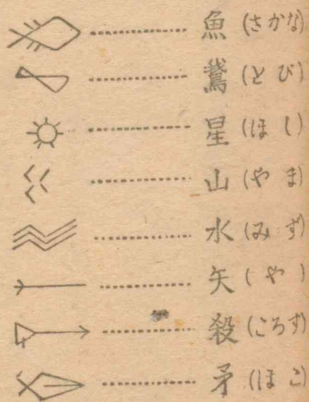 魚(さかな)
鵞(とび)
星(ほし)
山(やま)
水(みず)
矢(や)
殺(ころす)
矛(ほこ)